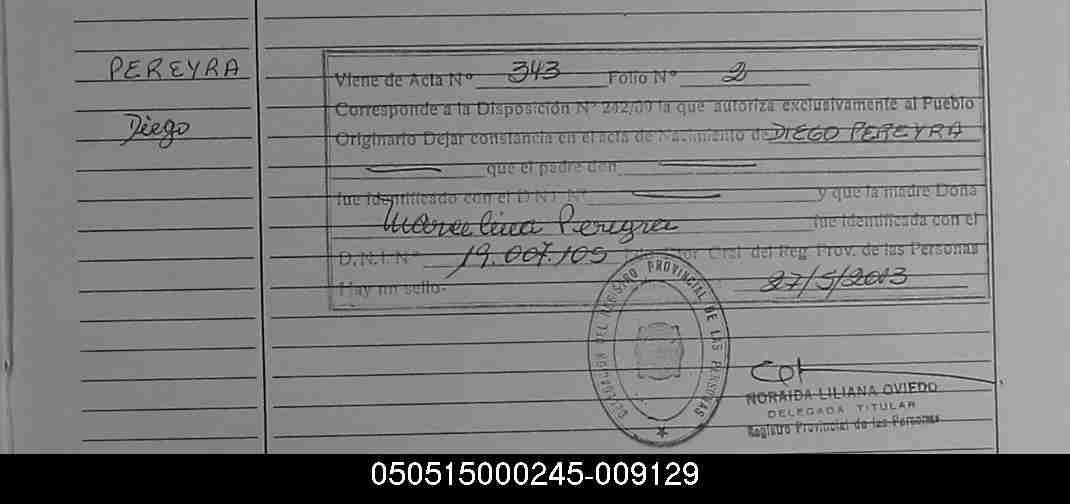 PEREYRA
Diego
Viene de Acta Nº 343 Folio Nº 2
Corresponde a la Disposición Nº 242/09 la que autoriza exclusivamente al Pueblo
Originario Dejar constancia en el acta de Nacimiento de DIEGO PEREYRA
que el padre don
fue identificado con el D.N.I. Nº y que la madre Doña
Marcelina Pereyra fue identificada con el
D.N.I. Nº 19.007.105 Gral del Reg Prov. de las Personas
Hay un sello- 27/5/2013
REGISTRO PROVINCIAL DE LAS PERSONAS
NORAIDA LILIANA OVIEDO
DELEGADA TITULAR
Registro Provincial de las Personas
050515000245-009129